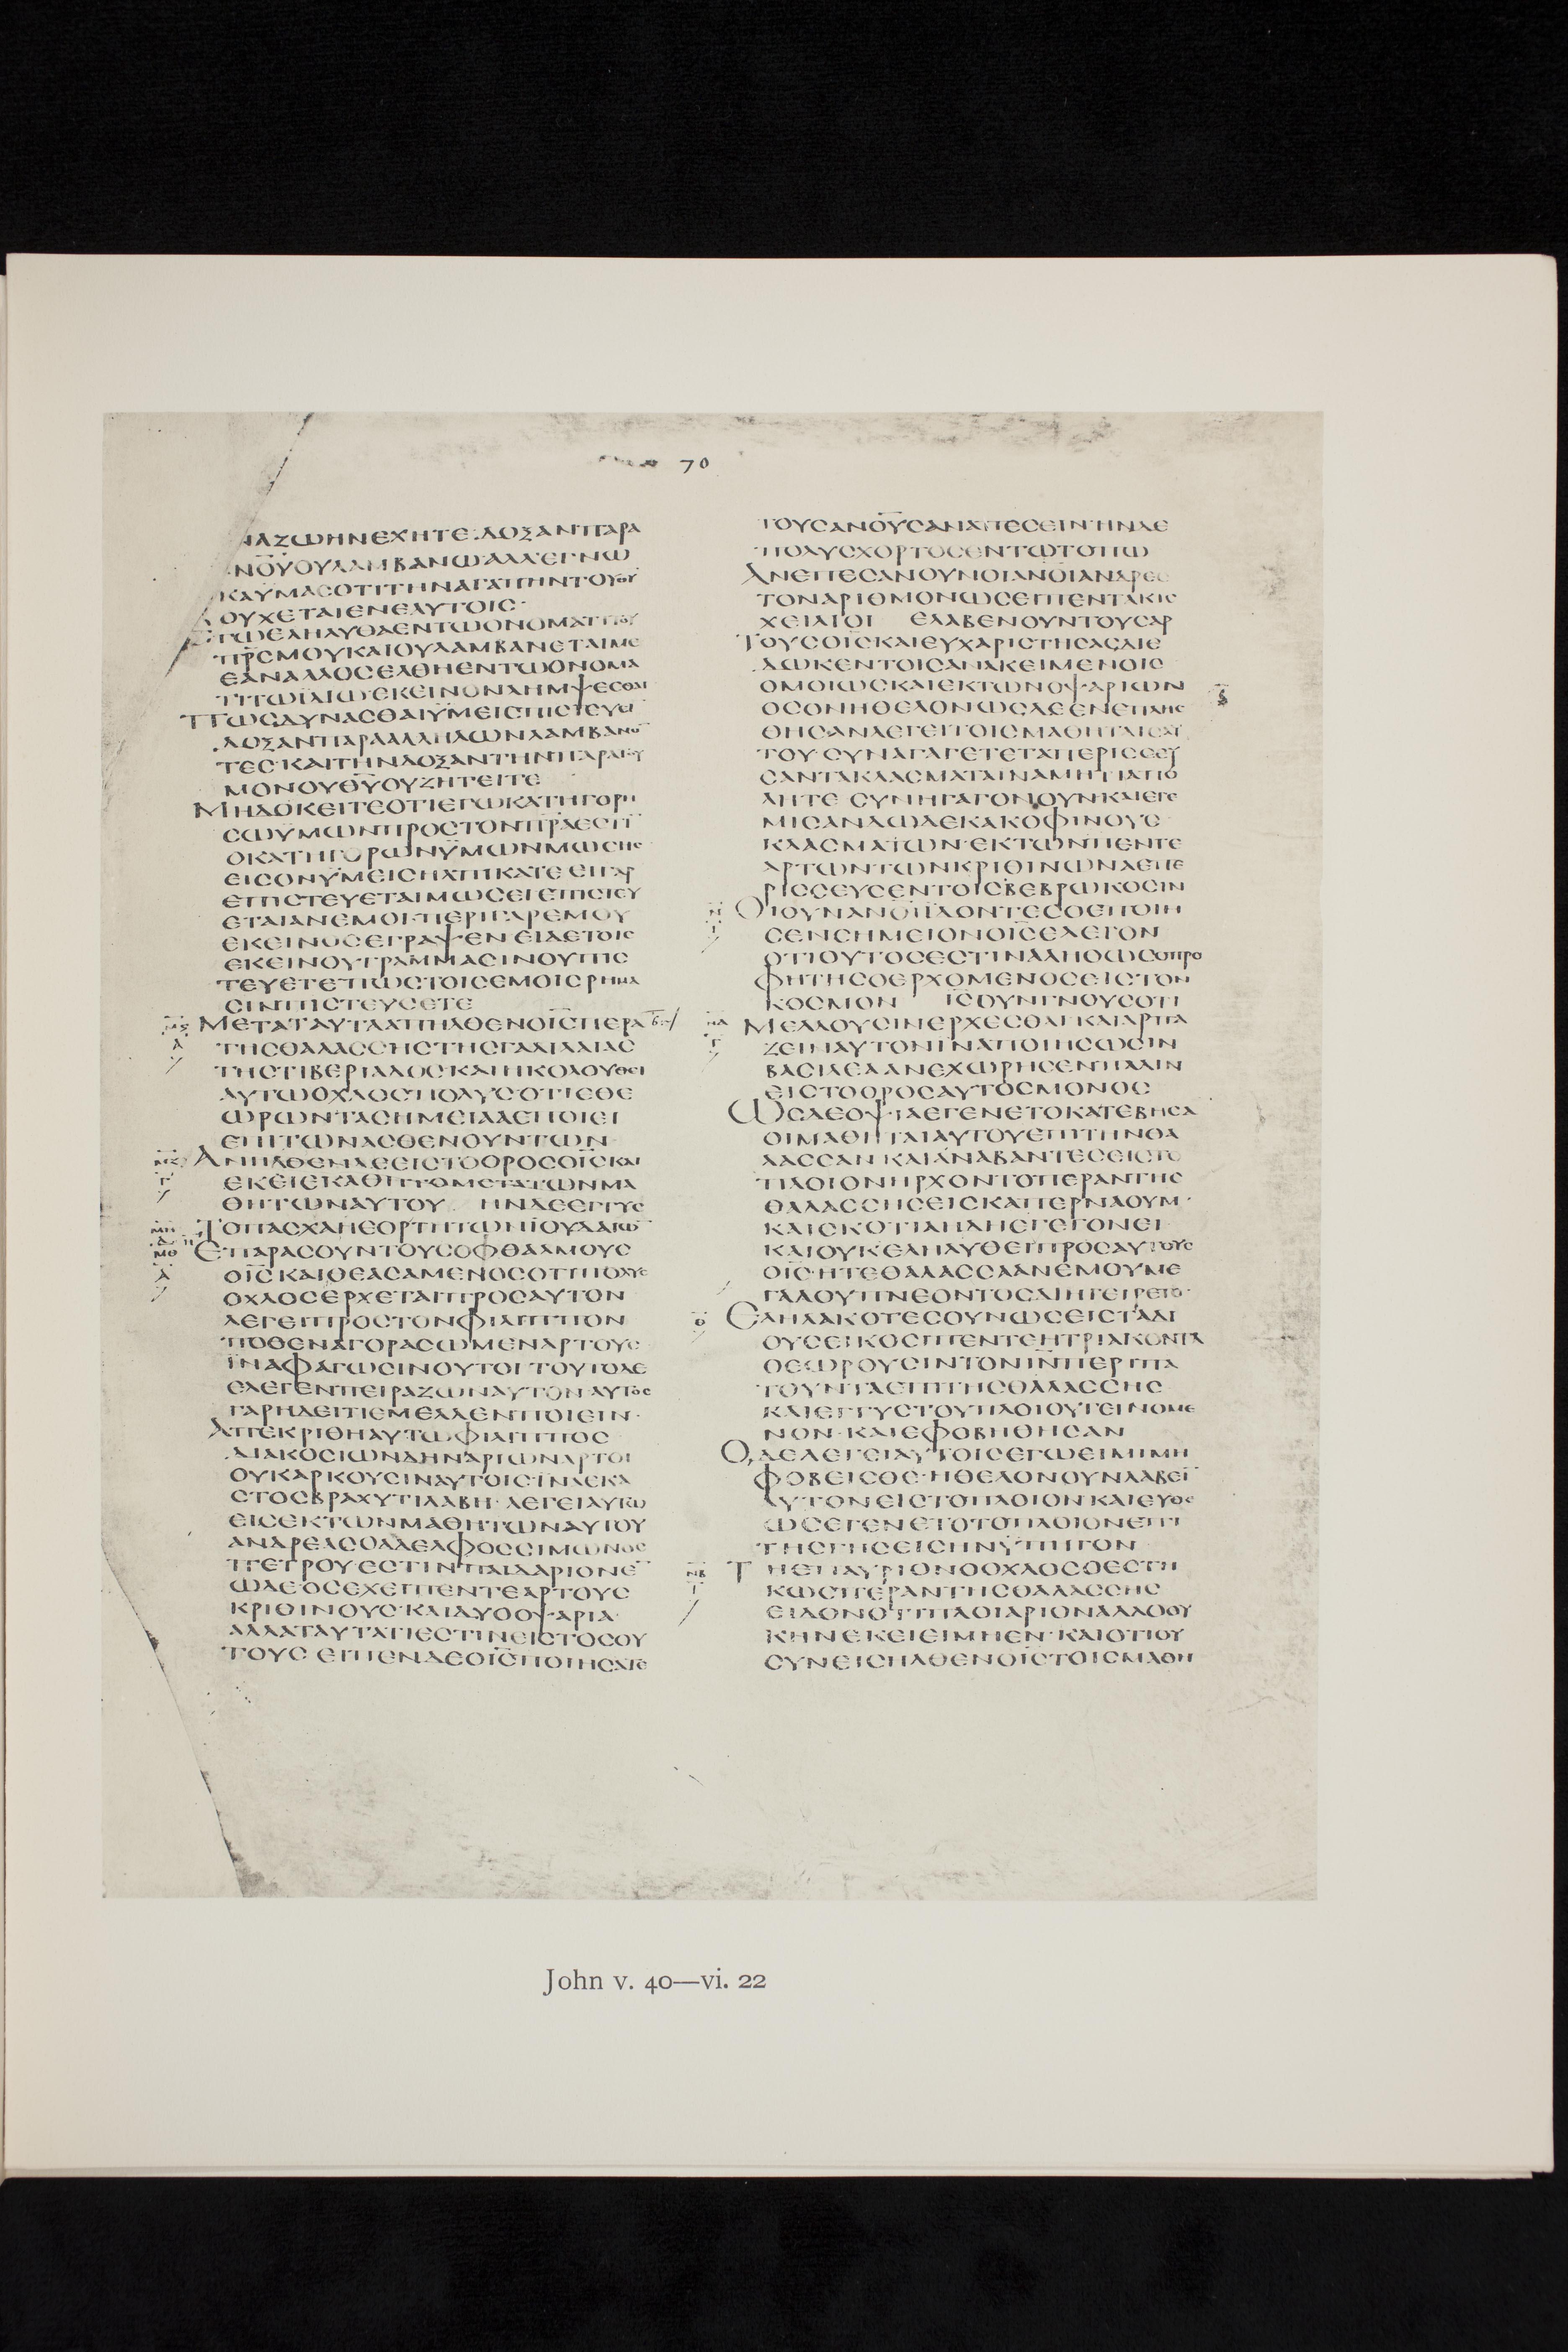 70
ΝΑΖΩΗΝΕΧΗΤΕ·ΔΟΞΑΝΠΑΡΑ
ΑΝ̅Ο̅Υ̅ΟΥΛΑΜΒΑΝΩΑΛΛΕΓΝΩ
ΚΑΫΜΑΣΟΤΙΤΗΝΑΓΑΠΗΝΤΟΥΘ̅Υ̅
ΟΥΧΕΤΑΙΕΝΕΑΥΤΟΙΣ·
ΕΓΩΕΛΗΛΥΘΑΕΝΤΩΟΝΟΜΑΤΙΤΟΥ
Π̅Ρ̅Σ̅ΜΟΥΚΑΙΟΥΛΑΜΒΑΝΕΤΑΙΜΕ
ΕΑΝΑΛΛΟΣΕΛΘΗΕΝΤΩΟΝΟΜΑ
ΤΙΤΩΪΔΙΩΕΚΕΙΝΟΝΛΗΜΨΕΣΘΑΙ
ΠΩΣΔΥΝΑΣΘΑΙΫΜΕΙΣΠΙΣΤΕΥΣΑΙ
ΔΟΞΑΝΠΑΡΑΑΛΛΗΛΩΝΛΑΜΒΑΝΟ̅
ΤΕΣ·ΚΑΙΤΗΝΔΟΞΑΝΤΗΝΠΑΡΑΤΟΥ
ΜΟΝΟΥΘ̅Υ̅ΟΥΖΗΤΕΙΤΕ
ΜΗΔΟΚΕΙΤΕΟΤΙΕΓΩΚΑΤΗΓΟΡΗ
ΣΩΫΜΩΝΠΡΟΣΤΟΝΠ̅Ρ̅Α̅ΕΣΤΙ̅
ΟΚΑΤΗΓΟΡΩΝΫΜΩΝΜΩΣΗΣ
ΕΙΣΟΝΫΜΕΙΣΗΛΠΙΚΑΤΕ·ΕΙΓΑΡ
ΕΠΙΣΤΕΥΕΤΑΙΜΩΣΕΙΕΠΙΣΤΕΥ
ΕΤΑΙΑΝΕΜΟΙ·ΠΕΡΙΓΑΡΕΜΟΥ
ΕΚΕΙΝΟΣΕΓΡΑΨΕΝ·ΕΙΔΕΤΟΙΣ
ΕΚΕΙΝΟΥΓΡΑΜΜΑΣΙΝΟΥΠΙΣ
ΤΕΥΕΤΕΠΩΣΤΟΙΣΕΜΟΙΣΡΗΜΑ
ΣΙΝΠΙΣΤΕΥΣΕΤΕ
ΜΕΤΑΤΑΥΤΑΑΠΗΛΘΕΝΟΙ̅Σ̅ΠΕΡΑ̅
ΤΗΣΘΑΛΑΣΣΗΣΤΗΣΓΑΛΙΛΑΙΑΣ
ΤΗΣΤΙΒΕΡΙΑΔΟΣΚΑΙΗΚΟΛΟΥΘΕΙ
ΑΥΤΩΟΧΛΟΣΠΟΛΥΣΟΤΙΕΘΕ
ΩΡΩΝΤΑΣΗΜΕΙΑΑΕΠΟΙΕΙ
ΕΠΙΤΩΝΑΣΘΕΝΟΥΝΤΩΝ
ΑΝΗΛΘΕΝΔΕΕΙΣΤΟΟΡΟΣΟΙ̅Σ̅ΚΑΙ
ΕΚΕΙΕΚΑΘΗΤΟΜΕΤΑΤΩΝΜΑ
ΘΗΤΩΝΑΥΤΟΥ ΗΝΔΕΕΓΓΥΣ
ΤΟΠΑΣΧΑΗΕΟΡΤΗΤΩΝΪΟΥΔΑΙΩ̅
ΕΠΑΡΑΣΟΥΝΤΟΥΣΟΦΘΑΛΜΟΥΣ
ΟΙ̅Σ̅ΚΑΙΘΕΑΣΑΜΕΝΟΣΟΤΙΠΟΛΥΣ
ΟΧΛΟΣΕΡΧΕΤΑΙΠΡΟΣΑΥΤΟΝ
ΛΕΓΕΙΠΡΟΣΤΟΝΦΙΛΙΠΠΟΝ
ΠΟΘΕΝΑΓΟΡΑΣΩΜΕΝΑΡΤΟΥΣ
ΪΝΑΦΑΓΩΣΙΝΟΥΤΟΙ·ΤΟΥΤΟΔΕ
ΕΛΕΓΕΝΠΕΙΡΑΖΩΝΑΥΤΟΝ·ΑΥΤΟΣ
ΓΑΡΗΔΕΙΤΙΕΜΕΛΛΕΝΠΟΙΕΙΝ·
ΑΠΕΚΡΙΘΗΑΥΤΩΦΙΛΙΠΠΟΣ
ΔΙΑΚΟΣΙΩΝΔΗΝΑΡΙΩΝΑΡΤΟΙ
ΟΥΚΑΡΚΟΥΣΙΝΑΥΤΟΙΣ·ΪΝΑΕΚΑ
ΣΤΟΣΒΡΑΧΥΤΙΛΑΒΗ·ΛΕΓΕΙΑΥΤΩ
ΕΙΣΕΚΤΩΝΜΑΘΗΤΩΝΑΥΤΟΥ
ΑΝΔΡΕΑΣΟΑΔΕΛΦΟΣΣΙΜΩΝΟΣ
ΠΕΤΡΟΥ·ΕΣΤΙΝΠΑΙΔΑΡΙΟΝΕ̅
ΩΔΕΟΣΕΧΕΙΠΕΝΤΕΑΡΤΟΥΣ
ΚΡΙΘΙΝΟΥΣ·ΚΑΙΔΥΟΟΨΑΡΙΑ·
ΑΛΛΑΤΑΥΤΑΤΙΕΣΤΙΝΕΙΣΤΟΣΟΥ
ΤΟΥΣ ΕΙΠΕΝΔΕΟΙ̅Σ̅ΠΟΙΗΣΑΤΕ
ΤΟΥΣΑΝ̅Ο̅Υ̅Σ̅ΑΝΑΠΕΣΕΙΝ·ΗΝΔΕ
ΠΟΛΥΣΧΟΡΤΟΣΕΝΤΩΤΟΠΩ
ΑΝΕΠΕΣΑΝΟΥΝΟΙΑΝ̅Ο̅Ι̅ΑΝΔΡΕΣ
ΤΟΝΑΡΙΘΜΟΝΩΣΕΙΠΕΝΤΑΚΙΣ
ΧΕΙΛΙΟΙ ΕΛΑΒΕΝΟΥΝΤΟΥΣΑΡ
ΤΟΥΣΟΙ̅Σ̅ΚΑΙΕΥΧΑΡΙΣΤΗΣΑΣΔΙΕ
ΔΩΚΕΝΤΟΙΣΑΝΑΚΕΙΜΕΝΟΙΣ
ΟΜΟΙΩΣΚΑΙΕΚΤΩΝΟΨΑΡΙΩΝ
ΟΣΟΝΗΘΕΛΟΝΩΣΔΕΕΝΕΠΛΗΣ
ΘΗΣΑΝΛΕΓΕΙΤΟΙΣΜΑΘΗΤΑΙΣΑΥ
ΤΟΥ·ΣΥΝΑΓΑΓΕΤΕΤΑΠΕΡΙΣΣΕΥ
ΣΑΝΤΑΚΛΑΣΜΑΤΑΙΝΑΜΗΤΙΑΠΟ
ΛΗΤΕ ΣΥΝΗΓΑΓΟΝΟΥΝ·ΚΑΙΕΓΕ
ΜΙΣΑΝΔΩΔΕΚΑΚΟΦΙΝΟΥΣ
ΚΛΑΣΜΑΤΩΝ·ΕΚΤΩΝΠΕΝΤΕ
ΑΡΤΩΝΤΩΝΚΡΙΘΙΝΩΝΑΕΠΕ
ΡΙΣΣΕΥΣΕΝΤΟΙΣΒΕΒΡΩΚΟΣΙΝ
ΟΙΟΥΝΑΝ̅Ο̅Ι̅ΪΔΟΝΤΕΣΟΕΠΟΙΗ
ΣΕΝΣΗΜΕΙΟΝΟΙ̅Σ̅ΕΛΕΓΟΝ
ΟΤΙΟΥΤΟΣΕΣΤΙΝΑΛΗΘΩΣΟΠΡΟ
ΦΗΤΗΣΟΕΡΧΟΜΕΝΟΣΕΙΣΤΟΝ
ΚΟΣΜΟΝ Ι̅Σ̅ΟΥΝΓΝΟΥΣΟΤΙ
ΜΕΛΛΟΥΣΙΝΕΡΧΕΣΘΑΙ·ΚΑΙΑΡΠΑ
ΖΕΙΝΑΥΤΟΝΙΝΑΠΟΙΗΣΩΣΙΝ
ΒΑΣΙΛΕΑΑΝΕΧΩΡΗΣΕΝΠΑΛΙΝ
ΕΙΣΤΟΟΡΟΣΑΥΤΟΣΜΟΝΟΣ
ΩΣΔΕΟΨΙΑΕΓΕΝΕΤΟΚΑΤΕΒΗΣΑ
ΟΙΜΑΘΗΤΑΙΑΥΤΟΥΕΠΙΤΗΝΘΑ
ΛΑΣΣΑΝ·ΚΑΙΑΝΑΒΑΝΤΕΣΕΙΣΤΟ
ΠΛΟΙΟΝΗΡΧΟΝΤΟΠΕΡΑΝΤΗΣ
ΘΑΛΑΣΣΗΣΕΙΣΚΑΠΕΡΝΑΟΥΜ·
ΚΑΙΣΚΟΤΙΑΗΔΗΕΓΕΓΟΝΕΙ
ΚΑΙΟΥΚΕΛΗΛΥΘΕΙΠΡΟΣΑΥΤΟΥΣ
ΟΙ̅Σ̅·ΗΤΕΘΑΛΑΣΣΑΑΝΕΜΟΥΜΕ
ΓΑΛΟΥΠΝΕΟΝΤΟΣΔΙΗΓΕΙΡΕΤΟ·
ΕΛΗΛΑΚΟΤΕΣΟΥΝΩΣΕΙΣΤΑΔΙ
ΟΥΣΕΙΚΟΣΙΠΕΝΤΕΗΤΡΙΑΚΟΝΤΑ
ΘΕΩΡΟΥΣΙΝΤΟΝΙ̅Ν̅ΠΕΡΙΠΑ
ΤΟΥΝΤΑΕΠΙΤΗΣΘΑΛΑΣΣΗΣ
ΚΑΙΕΓΓΥΣΤΟΥΠΛΟΙΟΥΓΕΙΝΟΜΕ
ΝΟΝ·ΚΑΙΕΦΟΒΗΘΗΣΑΝ
ΟΔΕΛΕΓΕΙΑΥΤΟΙΣΕΓΩΕΙΜΙΜΗ
ΦΟΒΕΙΣΘΕ·ΗΘΕΛΟΝΟΥΝΛΑΒΕΙ̅
ΑΥΤΟΝΕΙΣΤΟΠΛΟΙΟΝ·ΚΑΙΕΥΘΕ
ΩΣΕΓΕΝΕΤΟΤΟΠΛΟΙΟΝΕΠΙ
ΤΗΣΓΗΣΕΙΣΗΝΫΠΗΓΟΝ
ΤΗΕΠΑΥΡΙΟΝΟΟΧΛΟΣΟΕΣΤΗ
ΚΩΣΠΕΡΑΝΤΗΣΘΑΛΑΣΣΗΣ
ΕΙΔΟΝΟΤΙΠΛΟΙΑΡΙΟΝΑΛΛΟΟΥ
ΚΗΝΕΚΕΙΕΙΜΗΕΝ·ΚΑΙΟΤΙΟΥ
ΣΥΝΕΙΣΗΛΘΕΝΟΙ̅Σ̅ΤΟΙΣΜΑΘΗ
John v. 40—vi. 22